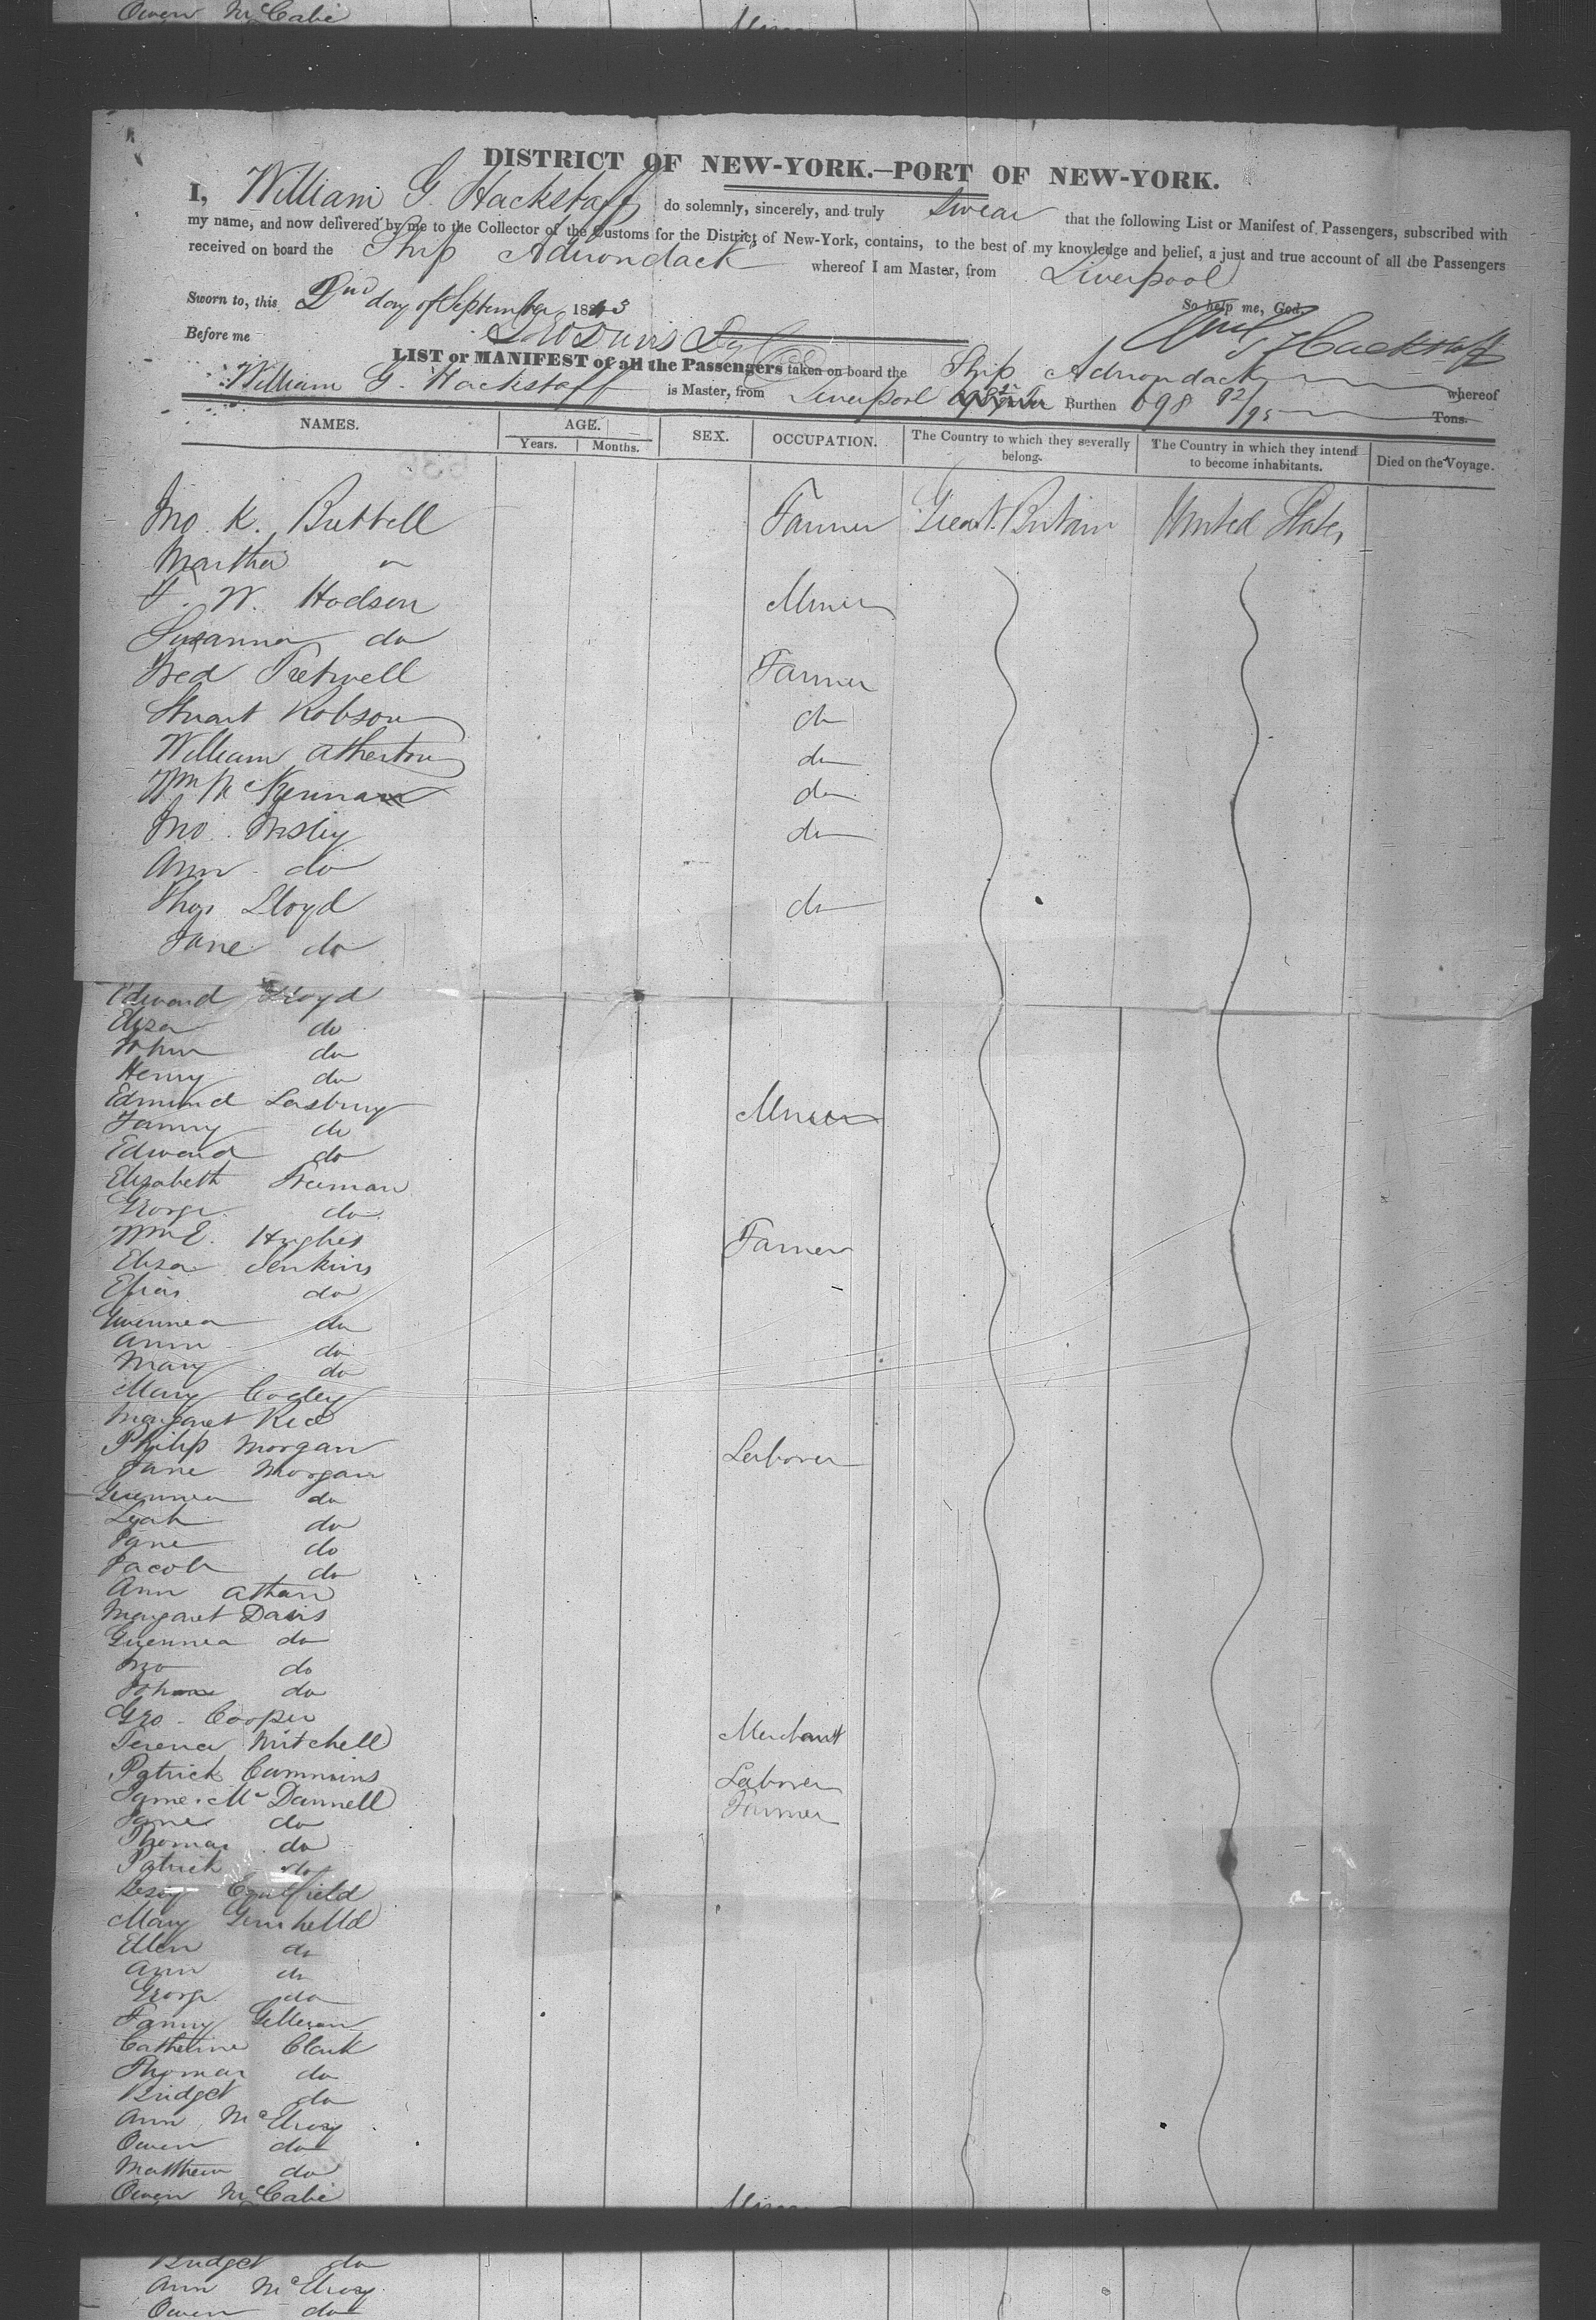 Owen McCabe
DISTRICT OF NEW-YORK.—PORT OF NEW-YORK.
I, William G. Hackstaff do solemnly, sincerely, and truly swear that the following List or Manifest of Passengers, subscribed with
my name, and now delivered by me to the Collector of the Customs for the District of New-York, contains, to the best of my knowledge and belief, a just and true account of all the Passengers
received on board the Ship Adirondack whereof I am Master, from Liverpool
Sworn to, this 2nd day of September 1843 So help me, God,
Before me Hackstaff
LIST or MANIFEST of all the Passengers taken on board the Ship Adirondack whereof
William G. Hackstaff is Master, from Liverpool Burthen 698 82/95 Tons.
NAMES. AGE. SEX. OCCUPATION. The Country to which they severally belong. The Country in which they intend to become inhabitants. Died on the Voyage.
Years. Months.
Jno K. Buttell Farmer Great Britain United States
Martha
W. Hodson Miner
Susanna do
Fred Farmer
Stuart Robson do
William Atherton do
Wm do
Jno do
Ann do
Thos Lloyd do
Jane do
Edward Lloyd
Eliza do
John do
Henry do
Edmund Lasbury Miner
Fanny do
Edward do
Elizabeth Freeman
George do
Wm E. Hughes Farmer
Eliza Jenkins
do
Gwennea do
Ann do
Mary do
Mary Cogley
Margaret Ree
Philip Morgan Laborer
Jane Morgan
Guennea do
Leah do
Jane do
Jacob do
Ann Athan
Margaret Davis
Guennea do
Jno do
do
Geo Cooper
Terence Mitchell Merchant
Patrick Cummins Laborer
James McDannell Farmer
Jane do
Thomas do
Patrick do
Mary
Ellen do
Ann do
George do
Fanny
Catherine Clark
Thomas do
Bridget do
Ann McElroy
Owen do
Matthew do
Owen McCabe
Bridget do
Ann McElroy
Owen do